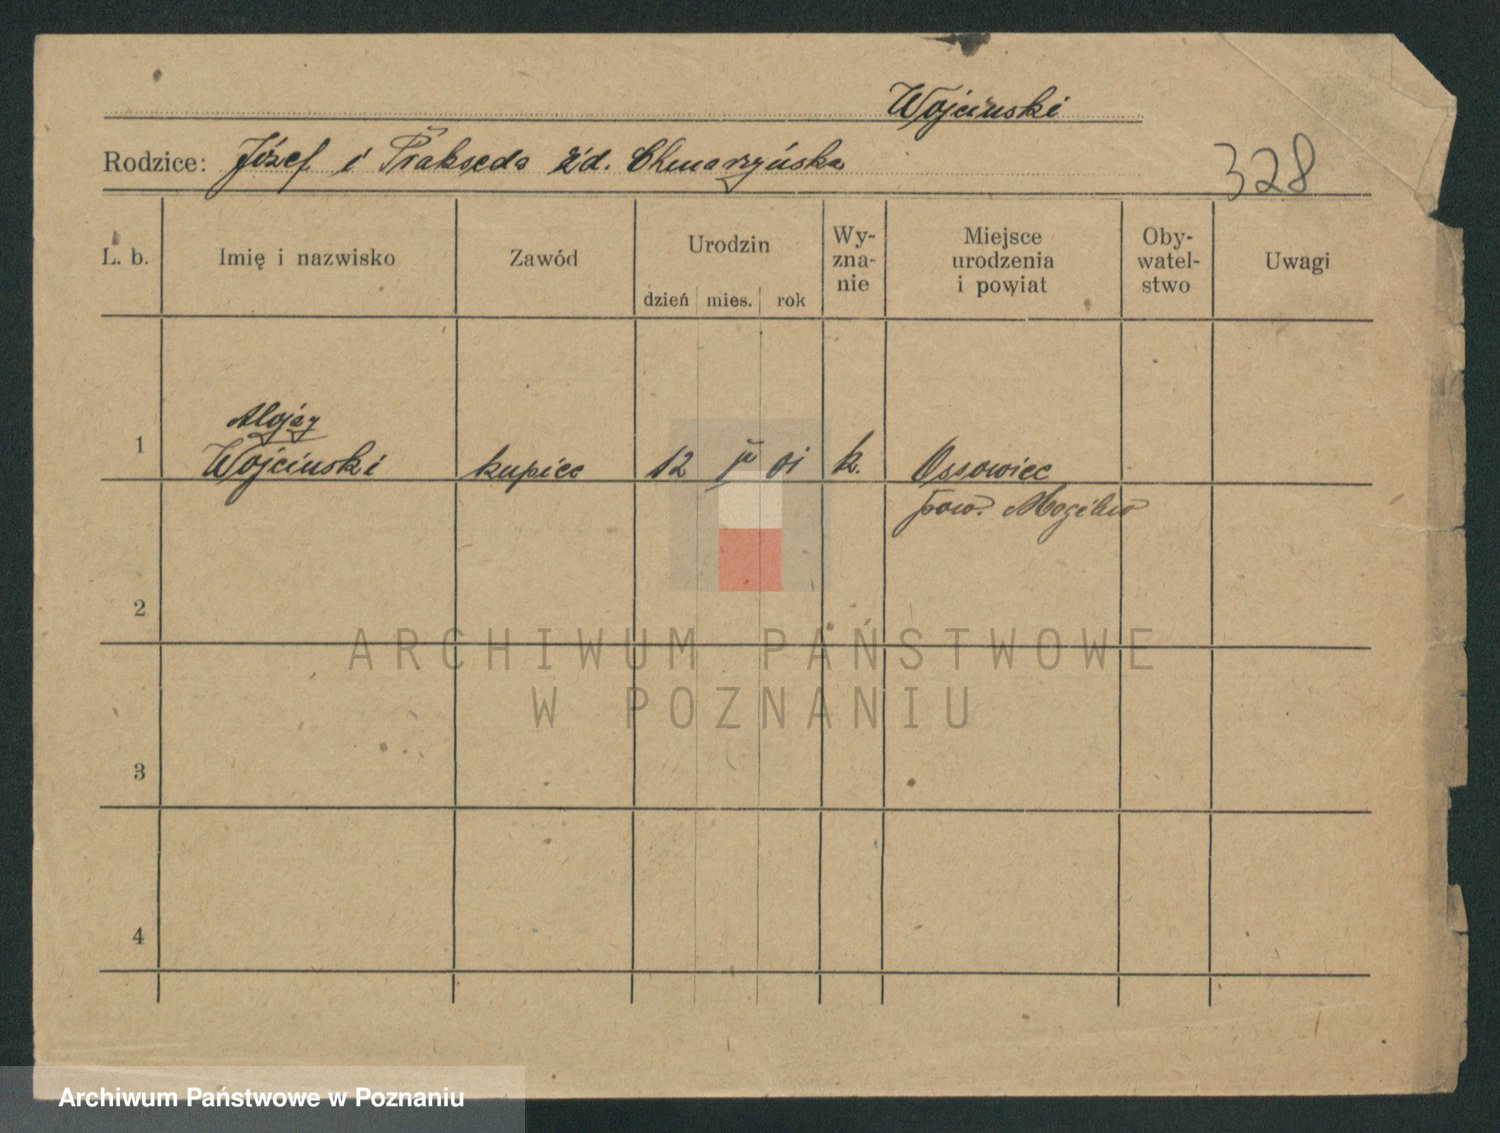 Wojcinski
Rodzice: Józef i Prakseda zd. Chmarzyńska
328
L. b. Imię i nazwisko Zawód Urodzin Wy-zna-nie Miejsce urodzenia i powiat Oby-watel-stwo Uwagi
dzień mies. rok
Alojzy
1 Wojcinski kupiec 12 01 k. Ossowiec
pow. Mogilno
2
ARCHIWUM PAŃSTWOWE
W POZNANIU
3
4
Archiwum Państwowe w Poznaniu